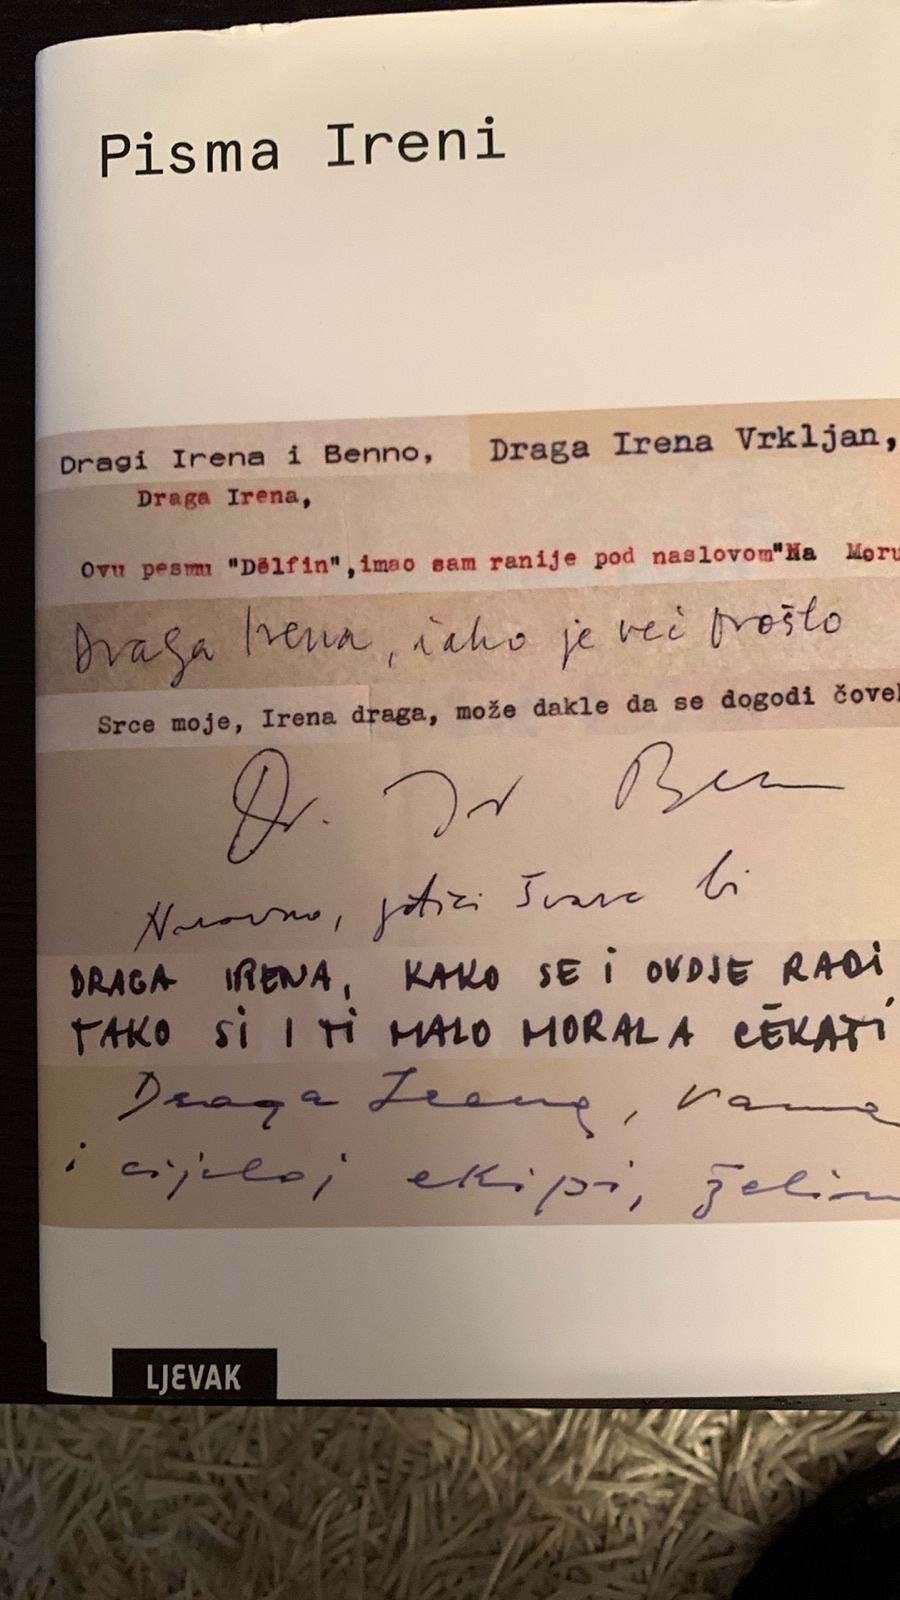 Pisma Ireni
Dragi Irena i Benno,
Draga Irena Vrkljan,
Draga Irena,
Ovu pesmu "Dëlfin",imao sam ranije pod naslovom"Na Moru
Draga Irena, iako je već prošlo
Srce moje, Irena draga, može dakle da se dogodi čovek
Dr. Ir Ben
Naravno, stvar bi
DRAGA IRENA, KAKO SE I OVDJE RADI
TAKO SI I TI MALO MORALA ČEKATI
Draga Irena, Vama
i cijeloj ekipi, želim
LJEVAK